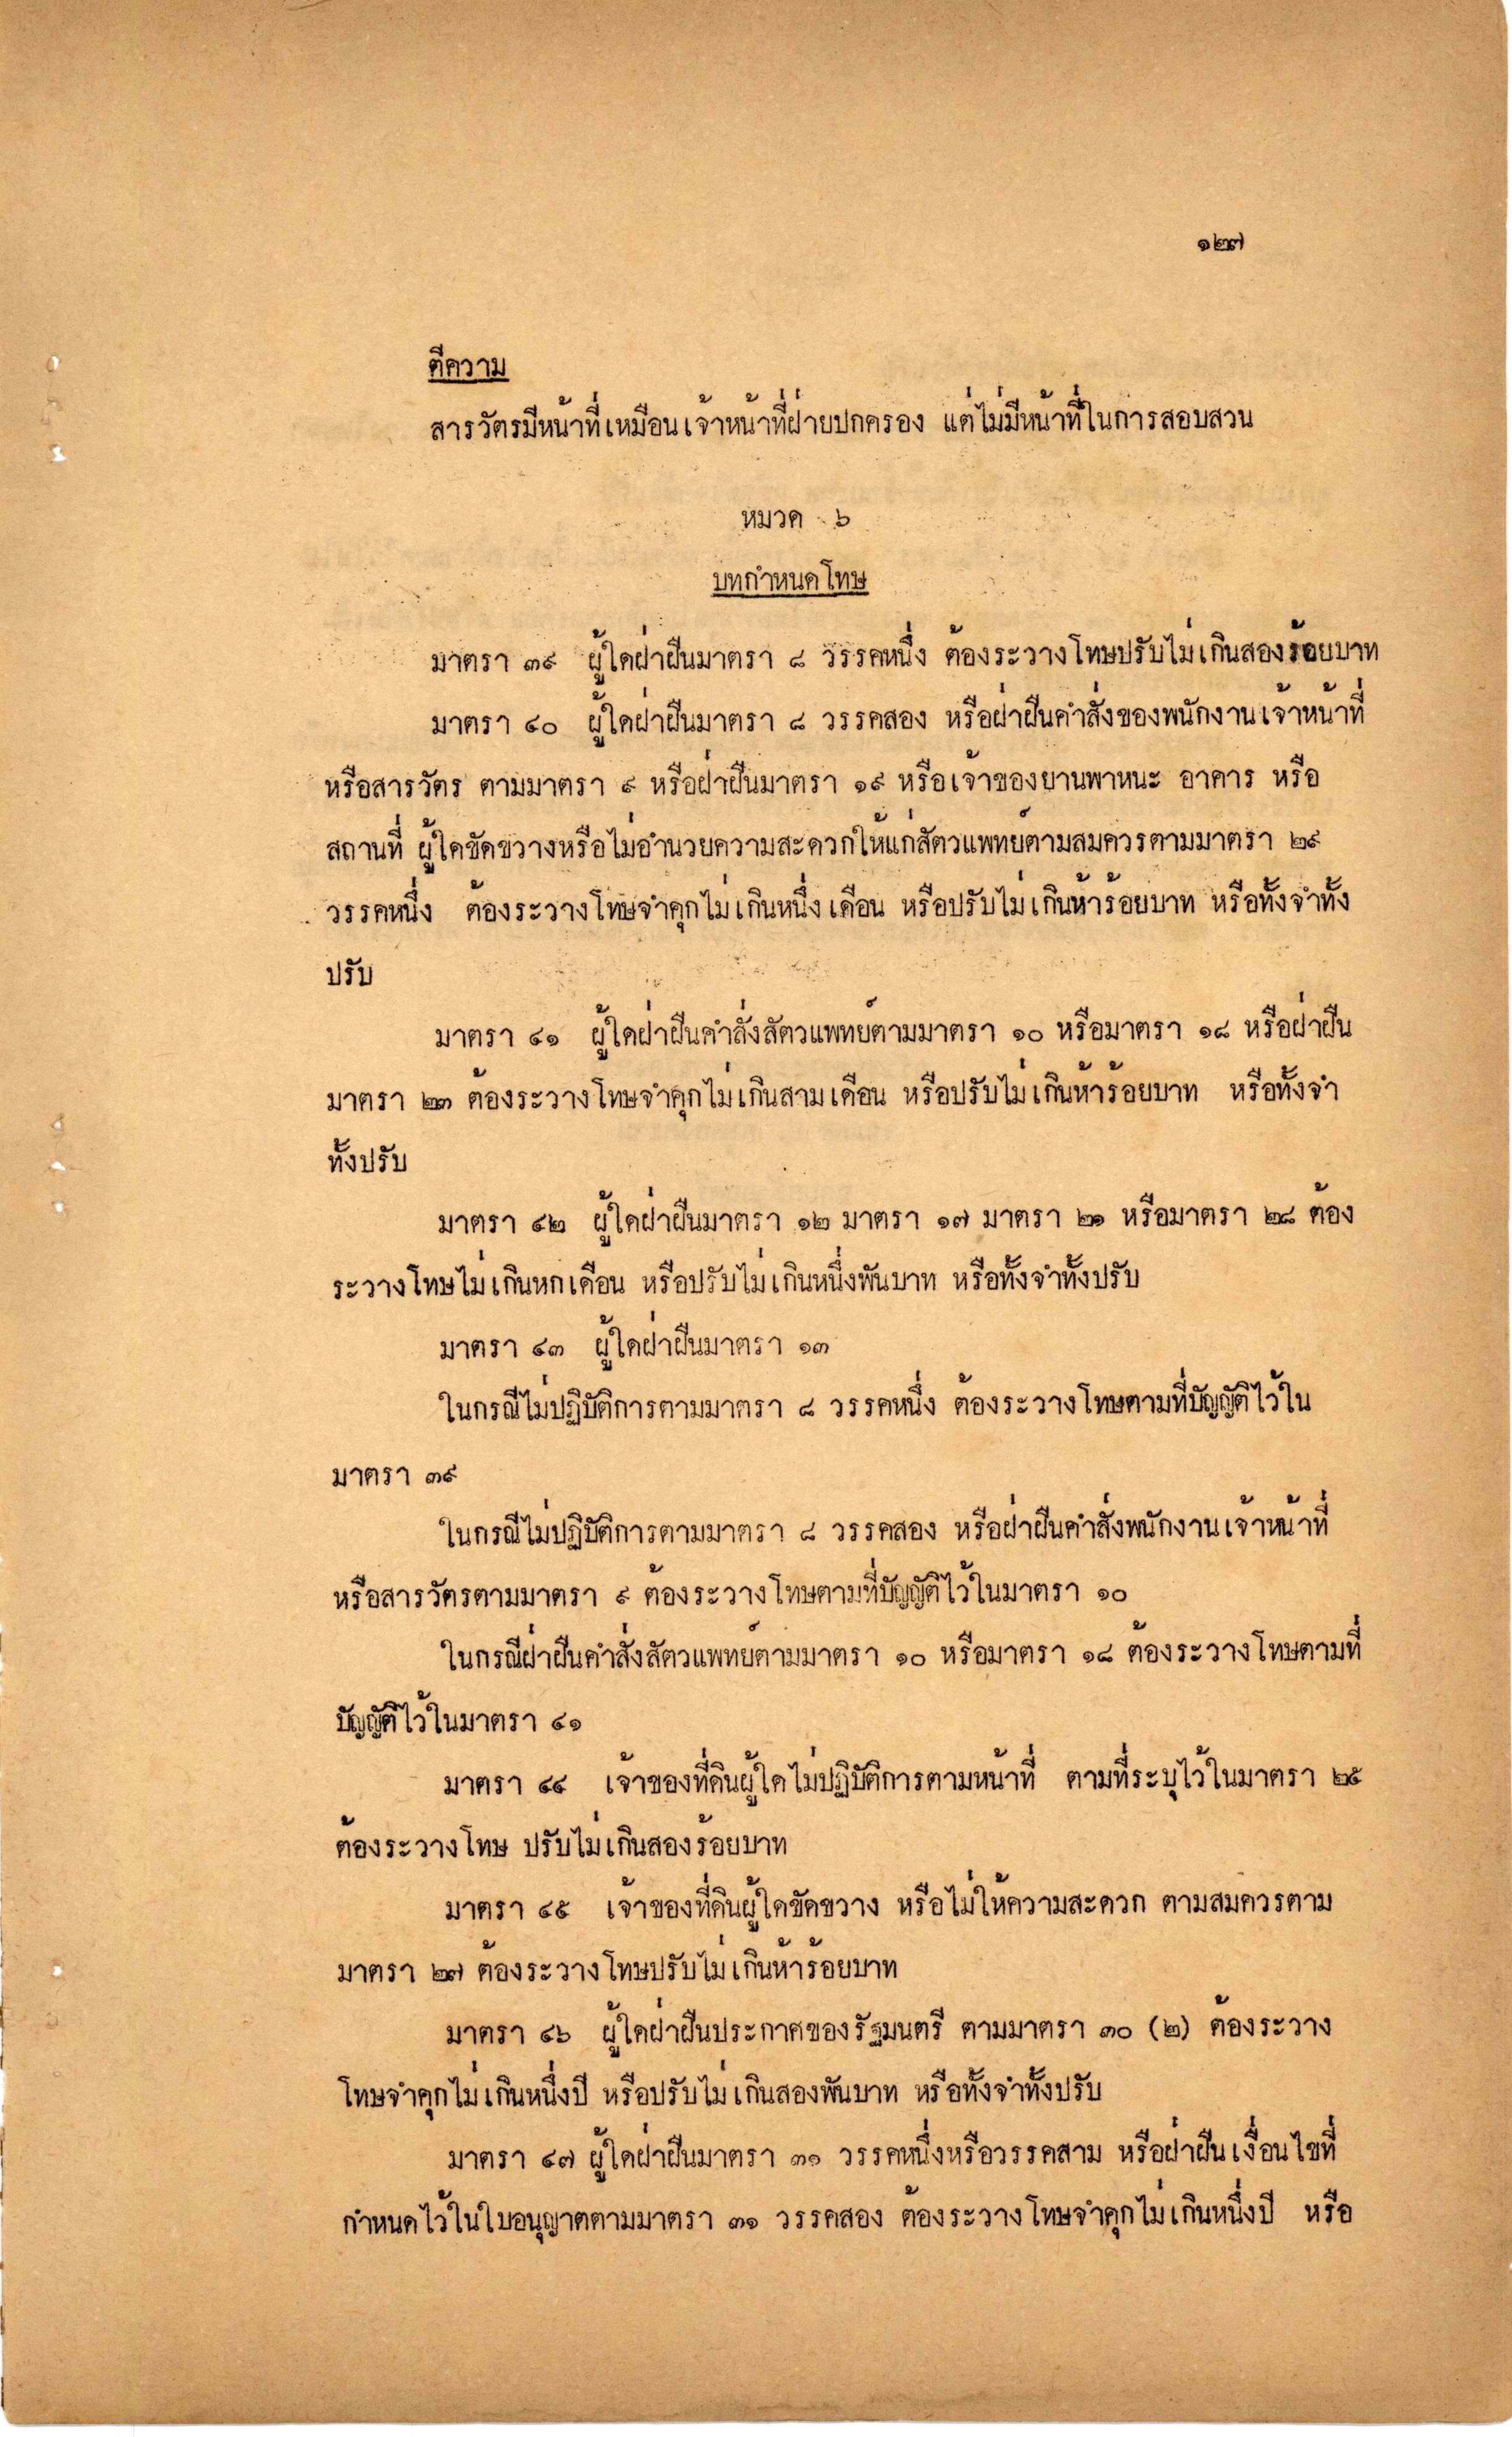 ๑๒๗
ตีความ
สารวัตรมีหน้าที่เหมือนเจ้าหน้าที่ฝ่ายปกครอง แต่ไม่มีหน้าที่ในการสอบสวน
หมวด ๖
บทกำหนดโทษ
มาตรา ๓๙ ผู้ใดฝ่าฝืนมาตรา ๘ วรรคหนึ่ง ต้องระวางโทษปรับไม่เกินสองร้อยบาท
มาตรา ๔๐ ผู้ใดฝ่าฝืนมาตรา ๘ วรรคสอง หรือฝ่าฝืนคำสั่งของพนักงานเจ้าหน้าที่
หรือสารวัตร ตามมาตรา ๙ หรือฝ่าฝืนมาตรา ๑๙ หรือเจ้าของยานพาหนะ อาคาร หรือ
สถานที่ ผู้ใดขัดขวางหรือไม่อำนวยความสะดวกให้แก่สัตวแพทย์ตามสมควรตามมาตรา ๒๙
วรรคหนึ่ง ต้องระวางโทษจำคุกไม่เกินหนึ่งเดือน หรือปรับไม่เกินห้าร้อยบาท หรือทั้งจำทั้ง
ปรับ
มาตรา ๔๑ ผู้ใดฝ่าฝืนคำสั่งสัตวแพทย์ตามมาตรา ๑๐ หรือมาตรา ๑๘ หรือฝ่าฝืน
มาตรา ๒๓ ต้องระวางโทษจำคุกไม่เกินสามเดือน หรือปรับไม่เกินห้าร้อยบาท หรือทั้งจำ
ทั้งปรับ
มาตรา ๔๒ ผู้ใดฝ่าฝืนมาตรา ๑๒ มาตรา ๑๗ มาตรา ๒๑ หรือมาตรา ๒๘ ต้อง
ระวางโทษไม่เกินหกเดือน หรือปรับไม่เกินหนึ่งพันบาท หรือทั้งจำทั้งปรับ
มาตรา ๔๓ ผู้ใดฝ่าฝืนมาตรา ๑๓
ในกรณีไม่ปฏิบัติการตามมาตรา ๘ วรรคหนึ่ง ต้องระวางโทษตามที่บัญญัติไว้ใน
มาตรา ๓๙
ในกรณีไม่ปฏิบัติการตามมาตรา ๘ วรรคสอง หรือฝ่าฝืนคำสั่งพนักงานเจ้าหน้าที่
หรือสารวัตรตามมาตรา ๙ ต้องระวางโทษตามที่บัญญัติไว้ในมาตรา ๑๐
ในกรณีฝ่าฝืนคำสั่งสัตวแพทย์ตามมาตรา ๑๐ หรือมาตรา ๑๘ ต้องระวางโทษตามที่
บัญญัติไว้ในมาตรา ๔๑
มาตรา ๔๔ เจ้าของที่ดินผู้ใดไม่ปฏิบัติการตามหน้าที่ ตามที่ระบุไว้ในมาตรา ๒๕
ต้องระวางโทษ ปรับไม่เกินสองร้อยบาท
มาตรา ๔๕ เจ้าของที่ดินผู้ใดขัดขวาง หรือไม่ให้ความสะดวก ตามสมควรตาม
มาตรา ๒๗ ต้องระวางโทษปรับไม่เกินห้าร้อยบาท
มาตรา ๔๖ ผู้ใดฝ่าฝืนประกาศของรัฐมนตรี ตามมาตรา ๓๐ (๒) ต้องระวาง
โทษจำคุกไม่เกินหนึ่งปี หรือปรับไม่เกินสองพันบาท หรือทั้งจำทั้งปรับ
มาตรา ๔๗ ผู้ใดฝ่าฝืนมาตรา ๓๑ วรรคหนึ่งหรือวรรคสาม หรือฝ่าฝืนเงื่อนไขที่
กำหนดไว้ในใบอนุญาตตามมาตรา ๓๑ วรรคสอง ต้องระวางโทษจำคุกไม่เกินหนึ่งปี หรือ